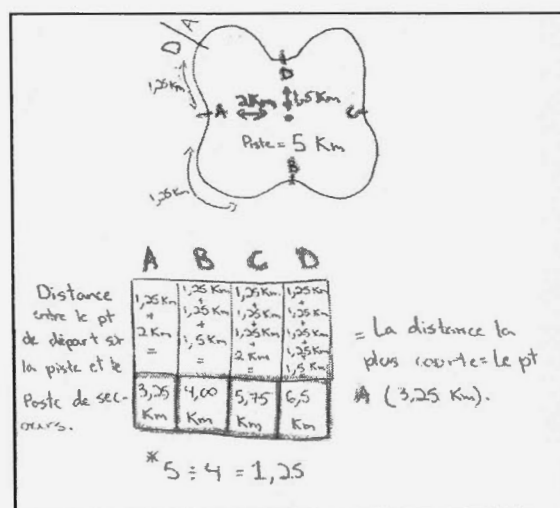 D A
1,25 Km
D
A 2 Km 1,5 Km C
Piste = 5 Km
B
1,25 Km
A B C D
Distance entre le pt de départ sur la piste et le Poste de secours.
1,25 Km + 2 Km =
1,25 Km + 1,25 Km + 1,5 Km =
1,25 Km + 1,25 Km + 1,25 Km + 2 Km =
1,25 Km + 1,25 Km + 1,25 Km + 1,25 Km 1,5 Km
3,25 Km
4,00 Km
5,75 Km
6,5 Km
= La distance la
plus courte = Le pt
A (3,25 Km).
* 5 ÷ 4 = 1,25